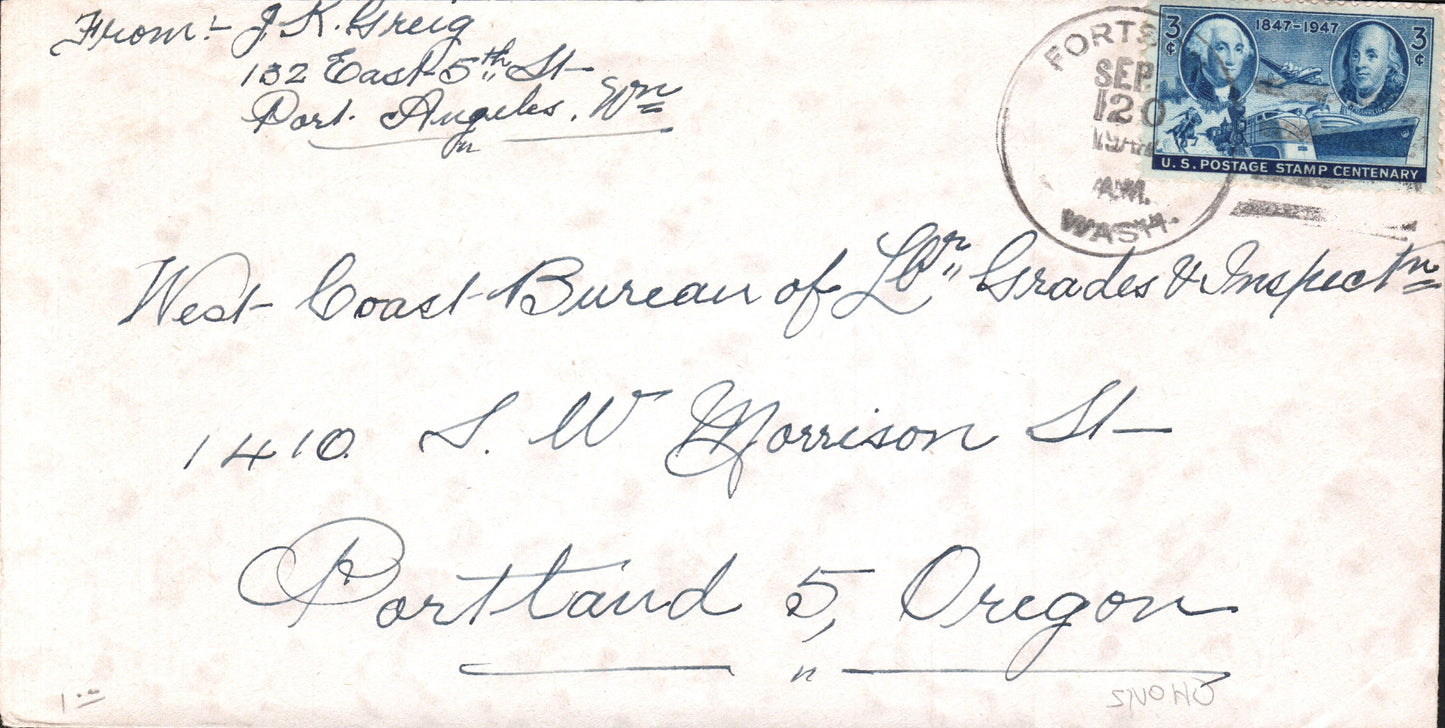 From:- J. K. Greig
132 East 5th St
Port Angeles, Wn
SEP
120
A.M.
WASH.
3¢ 1847-1947 3¢
U.S. POSTAGE STAMP CENTENARY
West Coast Bureau of Lbr Grades & Inspectn
1410 S. W Morrison St
Portland 5, Oregon
SNOHO